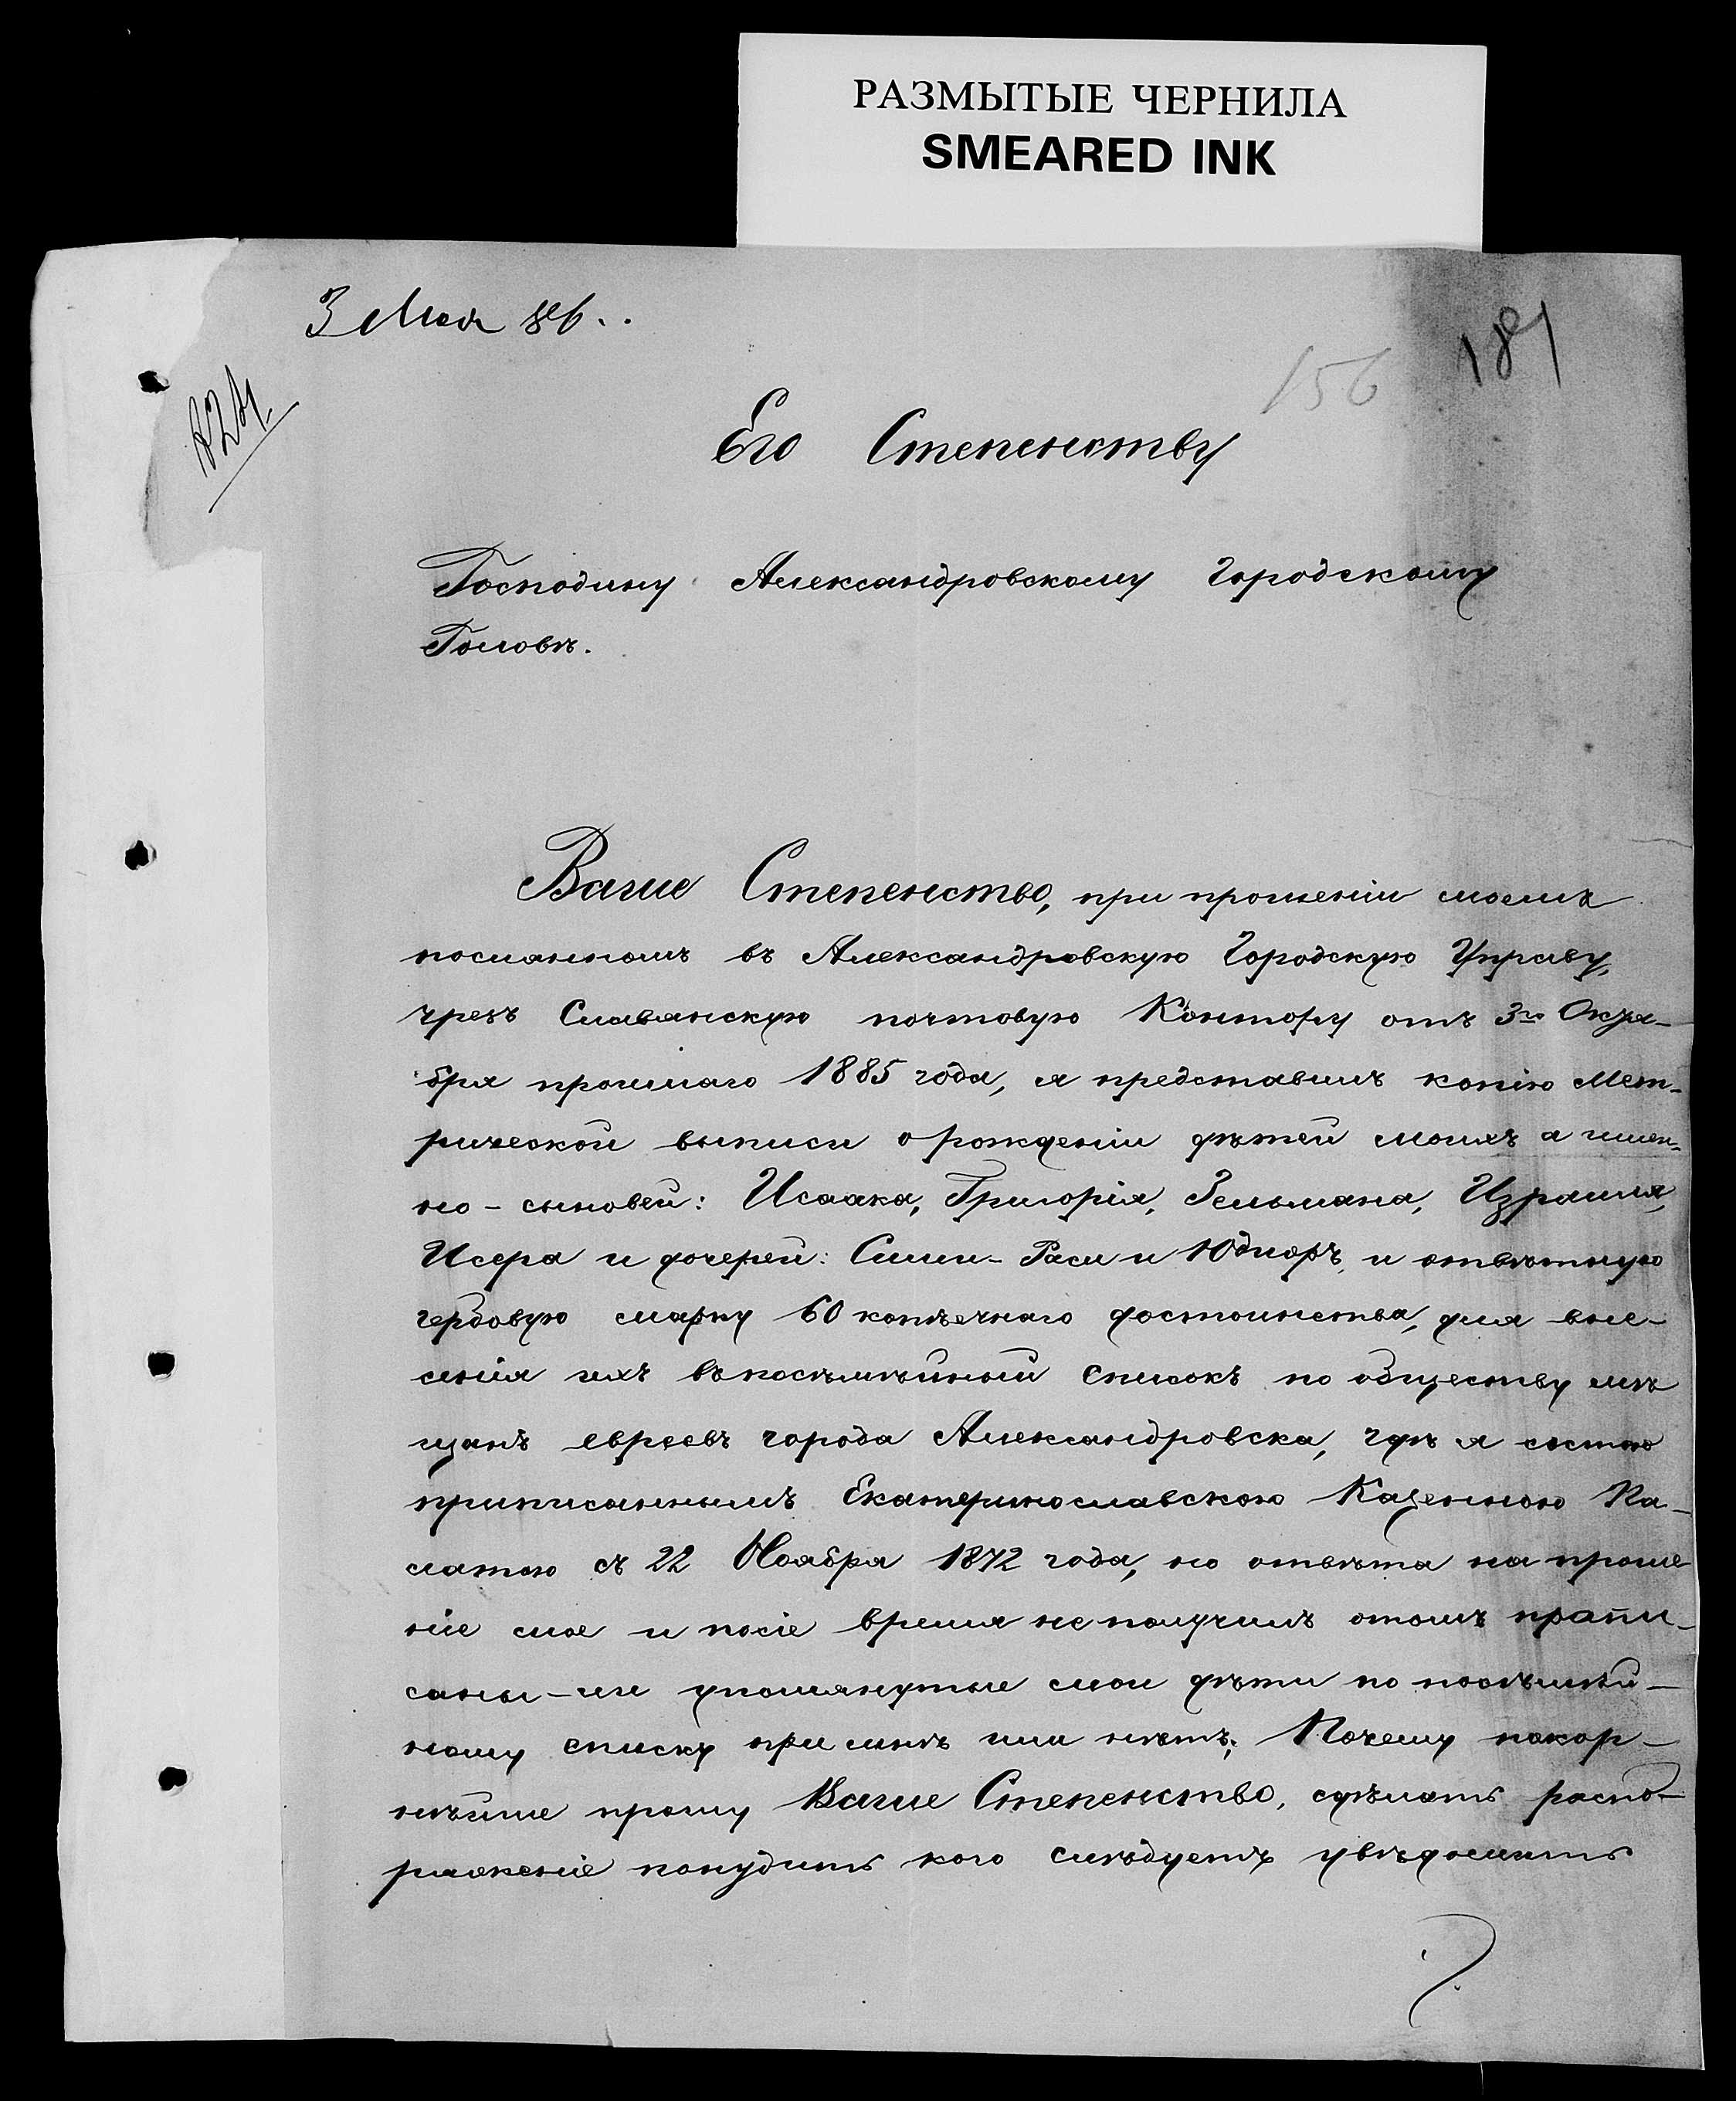 РАЗМЫТЫЕ ЧЕРНИЛА
SMEARED INK
3 Мая 86..
156 181
Его Степенству
Господину Александровскому Городскому
Головѣ.
Ваше Степенство, при прошеніи моемъ
посланномъ въ Александровскую Городскую Управу,
чрезъ Славянскую почтовую Контору отъ 3го Октя-
бря прошлаго 1885 года, я представилъ копію Мет-
рической выписи о рожденіи дѣтей моихъ а имен-
но - сыновей: Исаака, Григорія, Зельмана, Израиля,
Исера и дочерей: Сими-Раси и и отвѣтную
гербовую марку 60 копѣечнаго достоинства, для вне-
сенія ихъ въ посѣмейный списокъ по обществу мѣ
щанъ евреевъ города Александровска, гдѣ я состою
приписаннымъ Екатеринославскою Казенною Па-
латою съ 22 Ноября 1872 года, но отвѣта на проше
ніе мое и посіе время не получилъ отомъ припи-
саны-ли упомянутые мои дѣти по посѣмей-
ному списку при мнѣ или нѣтъ; Почему покор-
нѣйше прошу Ваше Степенство, сдѣлать распо-
ряженіе понудить кого слѣдуетъ увѣдомить